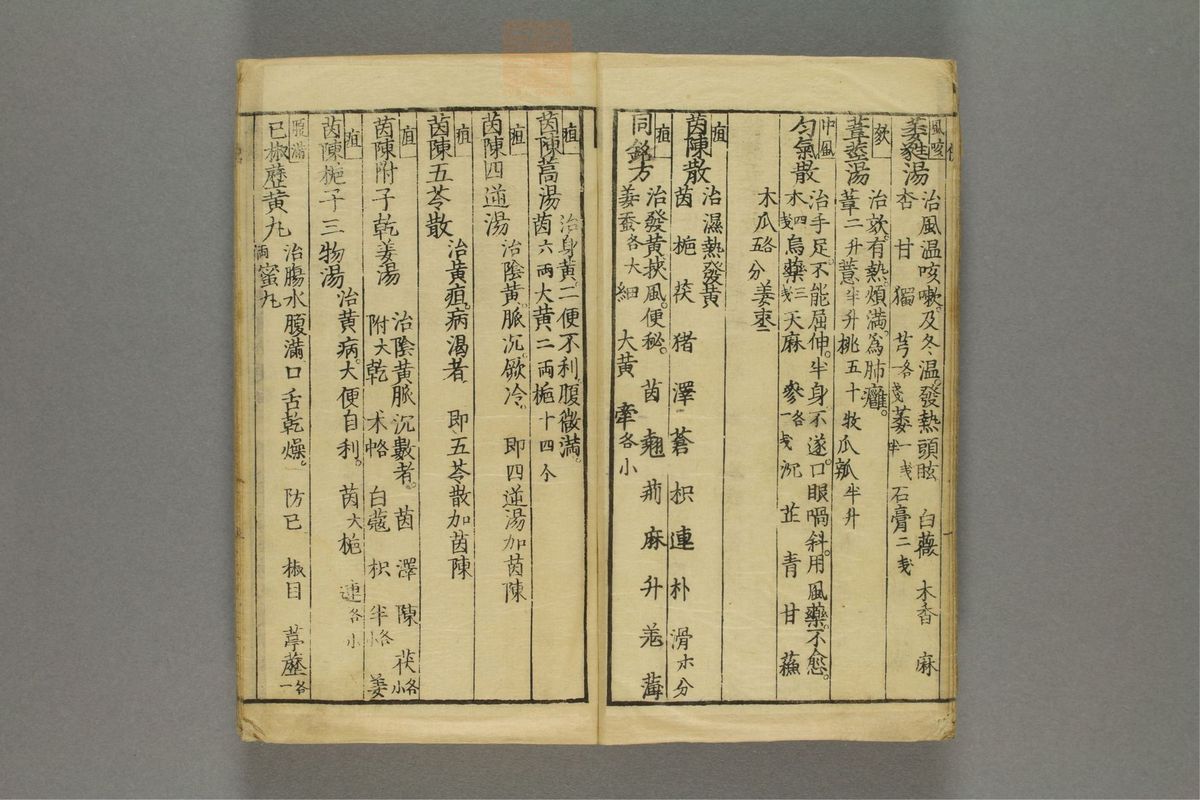 風咳
萎蕤湯
治風温咳嗽。及冬温。發熱頭眩 白薇 木香 麻
杏 甘 獨 芎各戔 萎一戔半 石膏二戔
欬
葦莖湯
治欬。有熱煩滿。為肺癰。
葦二升 薏半升 桃五十枚 瓜瓤半升
中風
匀氣散
治手足。不能屈伸。半身不遂。口眼喎斜。用風藥。不愈。
木四戔 烏藥三戔 天麻 參各一戔 沉 芷 青 甘 蘓
木瓜各五分 姜枣二
疸
茵陳散
治濕熱發黃
茵 梔 茯 猪 澤 蒼 枳 連 朴 滑 木分
疸
同銘方
治發黃。挾風。便秘。 茵 翹 荊 麻 升
姜蚕各大 細 大黃 牽各小
疸
茵陳蒿湯
治身黃。二便不利。腹微滿。
茵六兩 大黃二兩 梔十四个
疸
茵陳四逆湯
治陰黃。脈沉。厥冷。 即四逆湯加茵陳
疸
茵陳五苓散
治黃疸。病渴者 即五苓散加茵陳
疸
茵陳附子乾姜湯
治陰黃脈沉數者。 茵 澤 陳 茯各小
附大 乾 术各 白蔻 枳 半各小 姜
疸
茵陳梔子三物湯
治黃病。大便自利。 茵大 梔 連各小
腹滿
已椒藶黃丸
治腸水腹滿口舌乾燥。 防已 椒目 葶藶各一
兩蜜丸